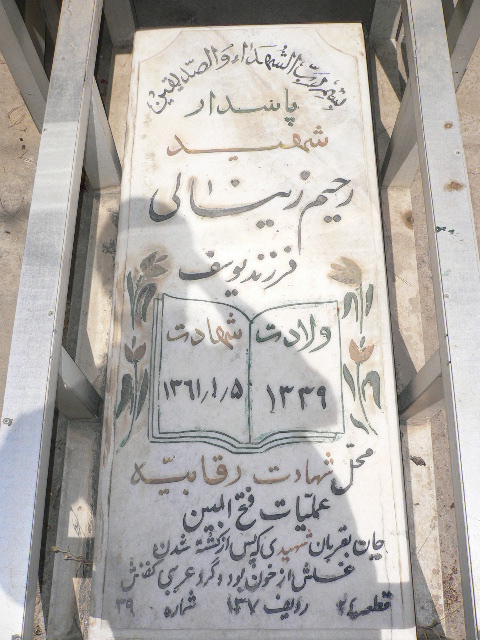 بسم رب الشهداء والصدیقین
پاسدار
شهید
رحیم زینالی
فرزند یوسف
ولادت
۱۳۳۹
شهادت
۱۳۶۱/۱/۵
محل شهادت رقابیه
عملیات فتح المبین
جان بقربان شهیدی که پس از کشته شدن
غسلش از خون بود و گرد عربی کفنش
قطعه ۲۴ ردیف ۱۳۷ شماره ۳۹